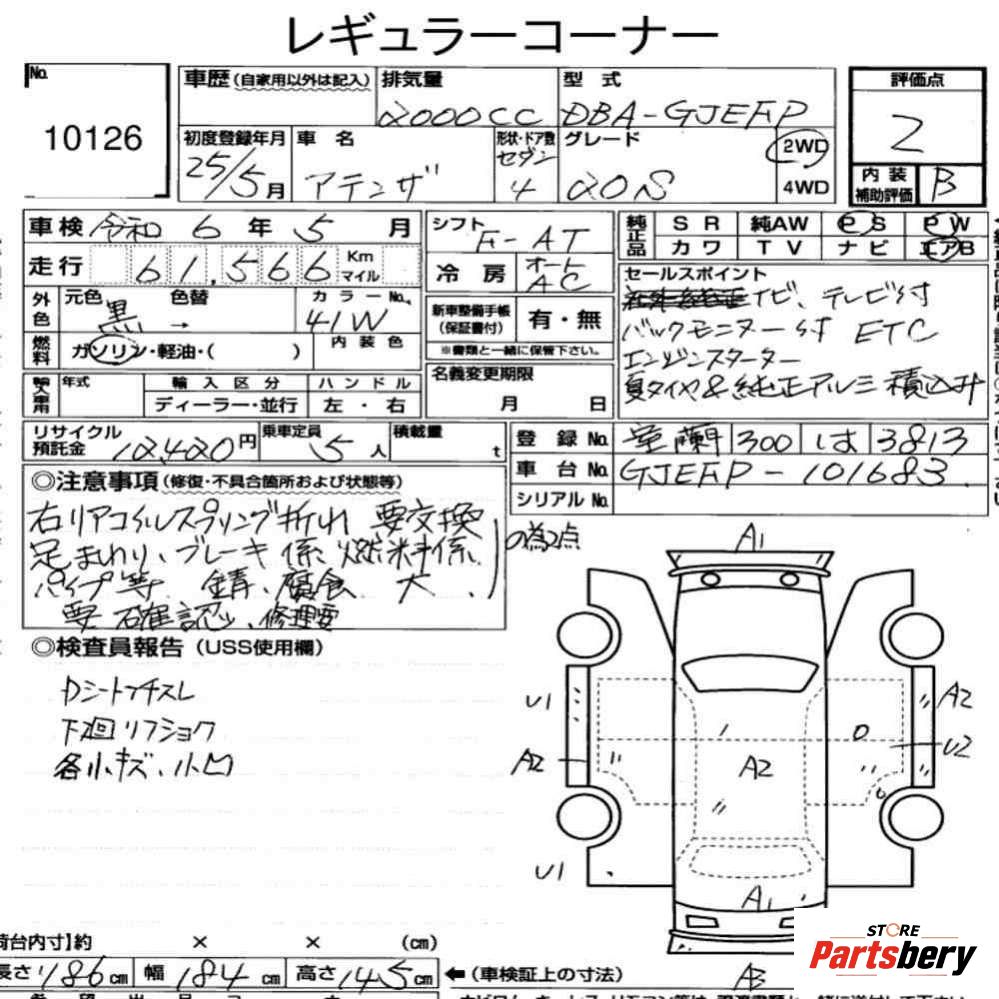 レギュラーコーナー
No.
10126
車歴 (自家用以外は記入)
排気量
2000CC
型式
DBA-GJEFP
評価点
2
初度登録年月
25/5月
車名
アテンザ
形状・ドア数
セダン
4
グレード
20S
2WD
4WD
内装
補助評価
B
車検 令和 6 年 5 月
シフト
F-AT
純正品
SR 純AW PS PW
カワ TV ナビ エアB
走行 61,566 Km マイル
冷房
オート
AC
セールスポイント
ナビ、テレビ付
バックモニター付 ETC
エンジンスターター
夏タイヤ&純正アルミ積込み
外色
元色
黒 →
色替
カラーNo.
41W
新車整備手帳
(保証書付)
有・無
※書類と一緒に保管下さい。
燃料
ガソリン・軽油・( )
内装色
輸入車用
年式
輸入区分
ディーラー・並行
ハンドル
左・右
名義変更期限
月 日
リサイクル
預託金
12,420円
乗車定員
5人
積載量
t
登録No.
室蘭 300 は 3813
車台No.
GJEFP-101683
シリアルNo.
◎注意事項 (修復・不具合箇所および状態等)
右リアコイルスプリング折れ 要交換
足まわり、ブレーキ系、燃料系、
パイプ等 錆、腐食 大
要確認、修理要
の為2点
◎検査員報告 (USS使用欄)
Dシートプチスレ
下廻リフショク
各小キズ、小凹
A1
U1
A2
A2
A2
U2
U1
A1
AB
荷台内寸】約 × × (cm)
長さ 486cm 幅 184cm 高さ 145cm
←(車検証上の寸法)
STORE
Partsbery